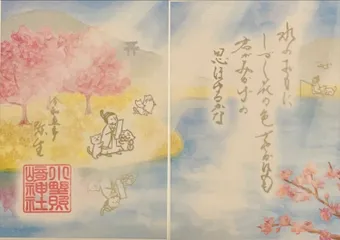 水のおもに
しづく花の色さやかにも
君がみかげの
思ほゆるかな
弥生
小野照
崎神社